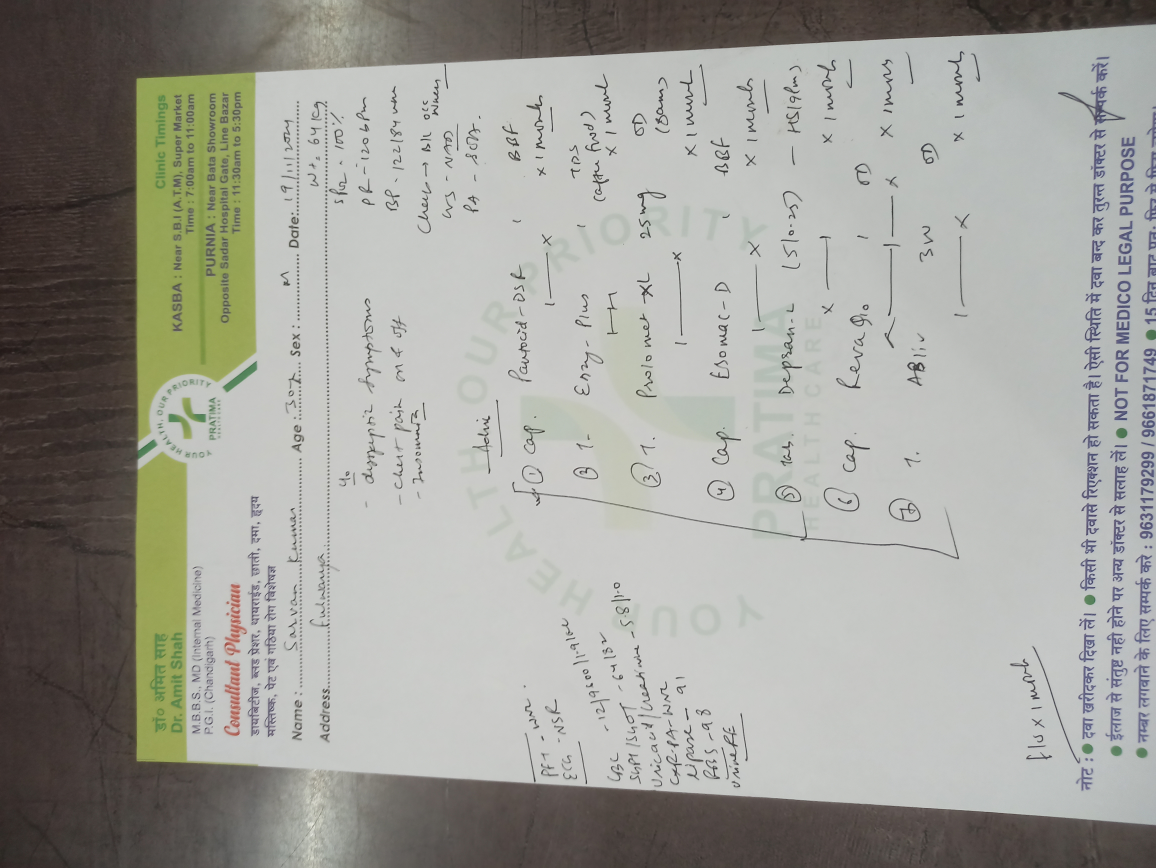 डॉ० अमित साह
Dr. Amit Shah
M.B.B.S., MD (Internal Medicine)
P.G.I. (Chandigarh)
Consultant Physician
डायबिटीज, ब्लड प्रेशर, थायराईड, छाती, दमा, हृदय
मस्तिष्क, पेट एवं गठिया रोग विशेषज्ञ
YOUR HEALTH, OUR PRIORITY
PRATIMA
Clinic Timings
KASBA : Near S.B.I (A.T.M), Super Market
Time : 7:00am to 11:00am
PURNIA : Near Bata Showroom
Opposite Sadar Hospital Gate, Line Bazar
Time : 11:30am to 5:30pm
Name : Sarvan Kumar Age : 30 Sex : M Date: 19/11/2024
Address
Wt. 64 kg
SPO2 - 100%
PR - 120 bpm
BP - 122/84 mm
Chest → B/L occ wheeze
CVS - NAD
PA - soft.
c/o
- dyspepsia symptoms
- chest pain on & off
- Insomnia
Advi
① Cap. Pantocid-DSR 1 BBF
1 x 1 month
② T. Enzy-Plus 1 TDS
(after food)
1-1-1 x 1 month
③ T. Prolomet-XL 25mg OD
(8am)
1 x x 1 month
④ Cap. Esomac-D 1 BBF
1 x x 1 month
⑤ Tab. Depran-L (5/0.25) - HS/9pm
x 1 x 1 month
⑥ Cap. 1 OD
1 x x 1 month
⑦ T. ABliv OD
1 x x 1 month
PFT - WNL
ECG - NSR
CBC - 12/9600/
SGPT/SGOT - 64/32
Uric acid/Creatinine - 5.8/1.0
CXR-PA-WNL
Lipase - 91
RBS - 98
Urine RE
f/u x 1 month
YOUR HEALTH OUR PRIORITY
PRATIMA
HEALTH CARE
नोट : ● दवा खरीदकर दिखा लें। ● किसी भी दवासे रिएक्शन हो सकता है। ऐसी स्थिति में दवा बन्द कर तुरन्त डॉक्टर से सम्पर्क करें।
● ईलाज से संतुष्ट नही होने पर अन्य डॉक्टर से सलाह लें। ● NOT FOR MEDICO LEGAL PURPOSE
● नम्बर लगवाने के लिए सम्पर्क करे : 9631179299 / 9661871749 ● 15 दिन बाद